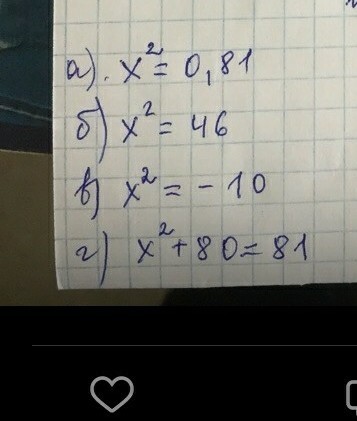 а). x² = 0,81
б) x² = 46
в) x² = - 10
г) x² + 80 = 81